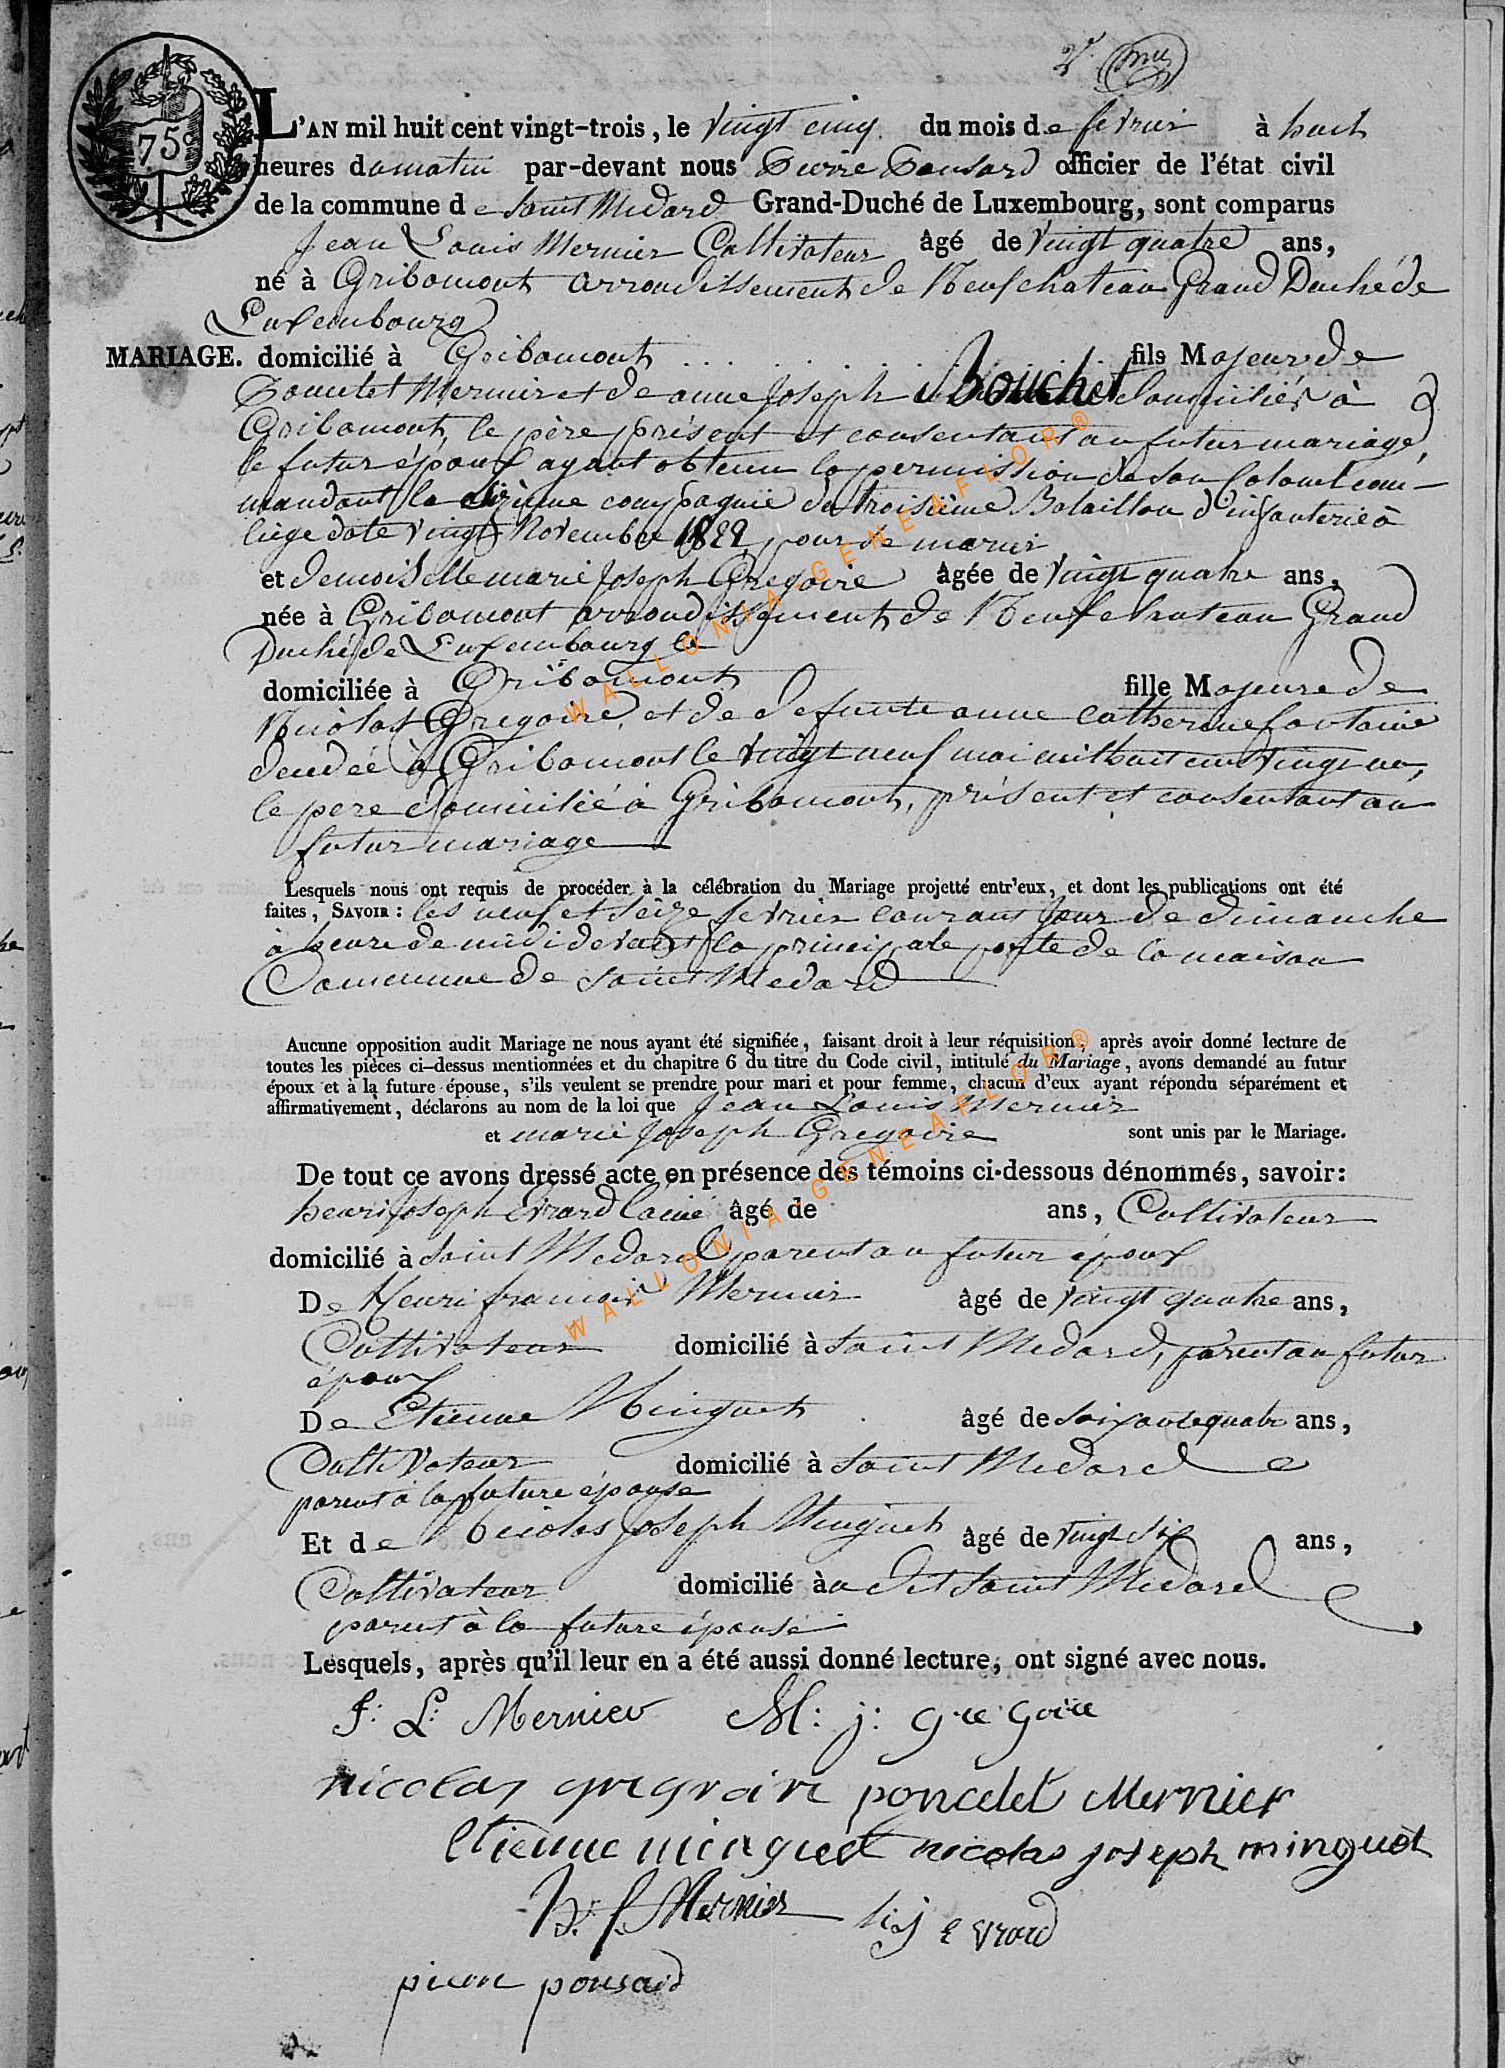 2e
75c
L'AN mil huit cent vingt-trois, le vingt cinq du mois de fevrier à huit
heures du matin par-devant nous Pierre Ponsard officier de l'état civil
de la commune de Saint Medard Grand-Duché de Luxembourg, sont comparus
Jean Louis Mernier Cultivateur âgé de vingt quatre ans,
né à Gribomont arrondissement de Neufchateau Grand Duché de
Luxembourg
MARIAGE. domicilié à Gribomont fils Majeur de
Poncelet Mernier et de anne Joseph Bouchet domiciliés à
Gribomont, le père présent et consentant au futur mariage,
le futur époux ayant obtenu la permission de son Colonel com-
mandant la compagnie du troisième Bataillon d'infanterie à
liège date vingt Novembre 1822, pour se marier
et demoiselle marie Joseph Gregoire âgée de vingt quatre ans,
née à Gribomont arrondissement de Neufchateau Grand
Duché de Luxembourg
domiciliée à Gribomont fille Majeure de
Nicolas Gregoire et de defunte anne catherine fontaine
décédée à Gribomont le vingt neuf mai mil huit cent vingt un,
le pere domicilié à Gribomont, présent et consentant au
futur mariage
Lesquels nous ont requis de procéder à la célébration du Mariage projetté entr'eux, et dont les publications ont été
faites, SAVOIR : les neuf et seize fevrier courant Jour de dimanche
à heure de midi devant la principale porte de la maison
Commune de Saint Medard
Aucune opposition audit Mariage ne nous ayant été signifiée, faisant droit à leur réquisition, après avoir donné lecture de
toutes les pièces ci-dessus mentionnées et du chapitre 6 du titre du Code civil, intitulé du Mariage, avons demandé au futur
époux et à la future épouse, s'ils veulent se prendre pour mari et pour femme, chacun d'eux ayant répondu séparément et
affirmativement, déclarons au nom de la loi que Jean Louis Mernier
et marie Joseph Gregoire sont unis par le Mariage.
De tout ce avons dressé acte en présence des témoins ci-dessous dénommés, savoir:
henri Joseph Evrard l'ainé âgé de ans, Cultivateur
domicilié à Saint Medard parent au futur époux
De Henri francois Mernier âgé de vingt quatre ans,
Cultivateur domicilié à Saint Medard, parent au futur
époux
De Etienne Minguet âgé de soixante quatre ans,
Cultivateur domicilié à Saint Medard
parent à la future épouse
Et de Nicolas Joseph Minguet âgé de vingt six ans,
Cultivateur domicilié à a dit Saint Medard
parent à la future épouse
Lesquels, après qu'il leur en a été aussi donné lecture, ont signé avec nous.
J: L: Mernier M: j: gregoire
nicolas gregoire poncelet Mernier
Etienne minguet nicolas joseph minguet
h. f. Mernier h j evrard
pierre ponsard
WALLONIA-GENEAFLOR®
WALLONIA-GENEAFLOR®